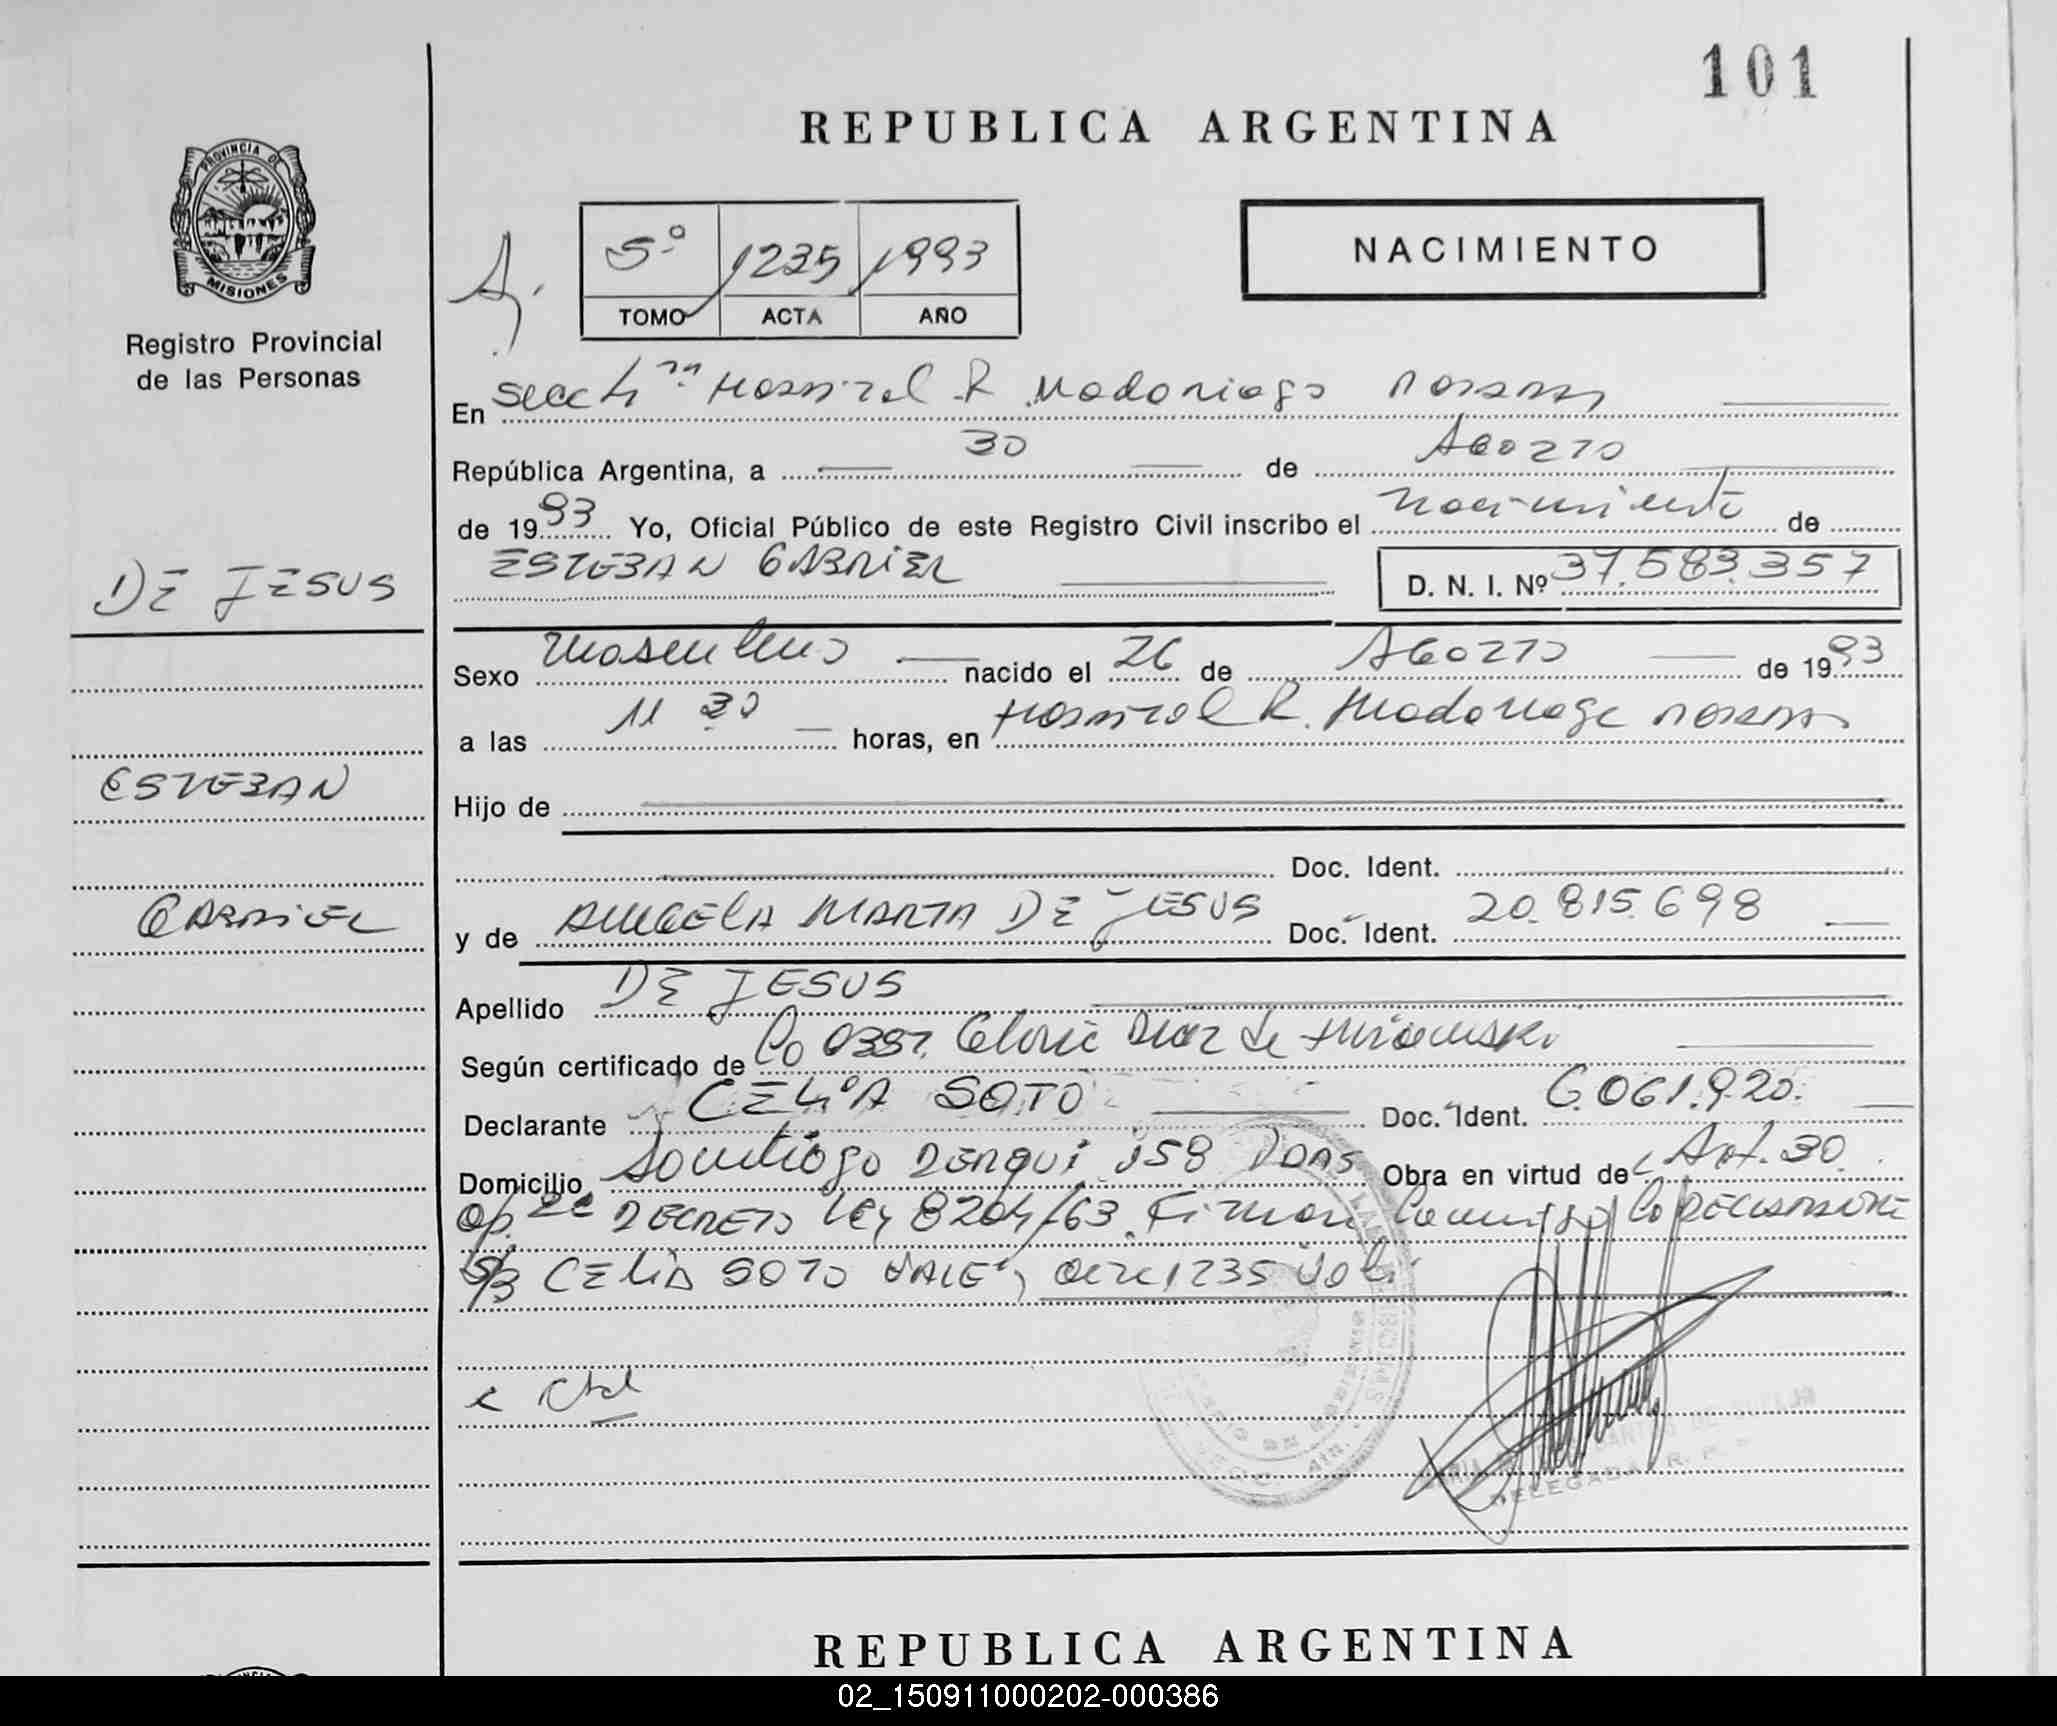 101
REPUBLICA ARGENTINA
PROVINCIA DE
MISIONES
Registro Provincial
de las Personas
5º 1235 1993
TOMO ACTA AÑO
NACIMIENTO
En Secc 4ª Hospital R. Madariaga Posadas
República Argentina, a 30 de Agosto
de 1993 Yo, Oficial Público de este Registro Civil inscribo el nacimiento de
ESTEBAN GABRIEL
D. N. I. Nº 37.583.357
DE JESUS
Sexo masculino nacido el 26 de Agosto de 1993
a las 11 30 horas, en Hospital R. Madariaga Posadas
ESTEBAN
Hijo de
Doc. Ident.
GABRIEL
y de ANGELA MARTA DE JESUS Doc. Ident. 20.815.698
Apellido DE JESUS
Según certificado de Co 0357. Gloria Diaz de
Declarante CELIA SOTO Doc. Ident. 6.061.920.
Domicilio Santiago Derqui 158 Pdas Obra en virtud de Art. 30
Ap. 2º DECRETO Ley 8204/63. Firman conmigo la DECLARANTE
S/B CELIA SOTO VALE, acta 1235 Vale
REPUBLICA ARGENTINA
02_150911000202-000386